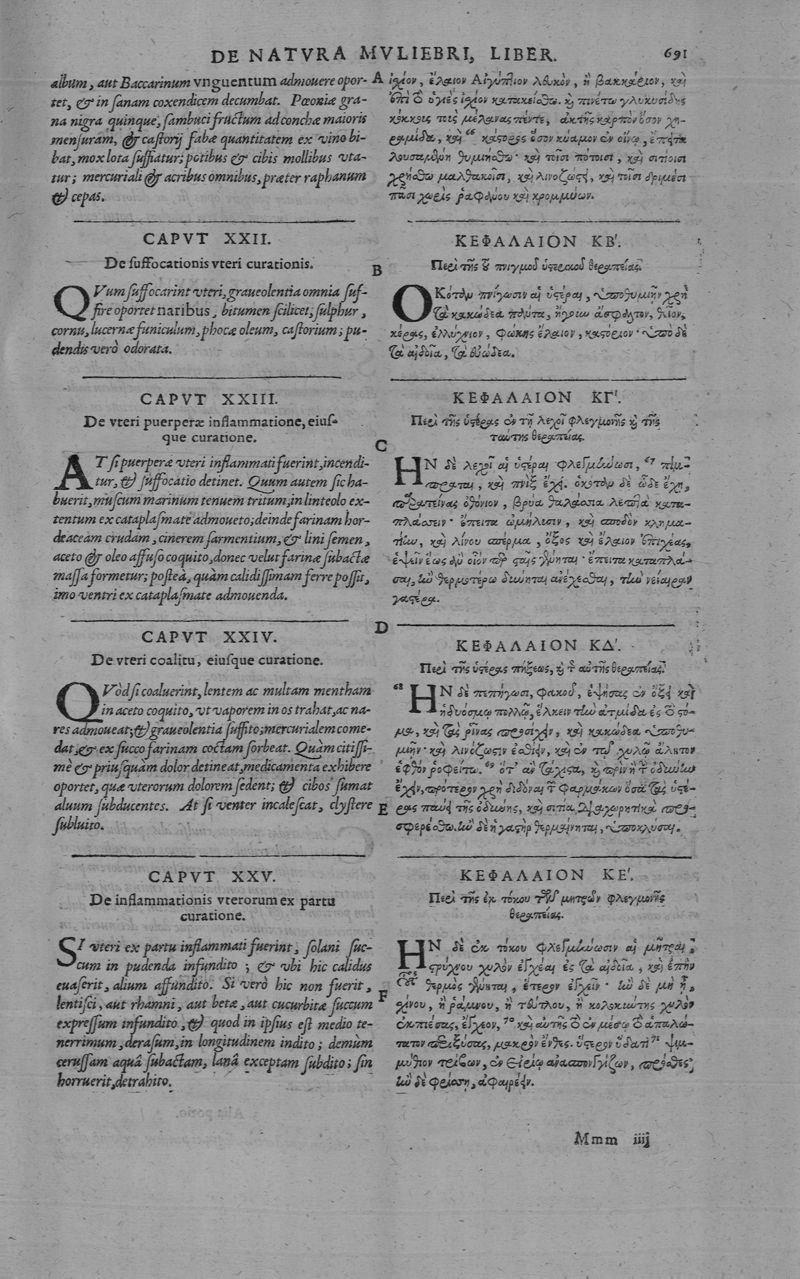 DE NATVRA MVLIEBRI, LIBER. 691
album, aut Baccarinum vnguentum admouere opor-
tet, & in sanam coxendicem decumbat. Pœoniæ gra-
na nigra quinque, sambuci fructum ad conchæ maioris
mensuram, & castorij fabæ quantitatem ex vino bi-
bat, mox lota suffiatur; potibus & cibis mollibus vta-
tur; mercuriali & acribus omnibus, præter raphanum
& cepas.
CAPVT XXII.
De suffocationis vteri curationis.
QVum suffocarint vteri, graueolentia omnia suf-
fire oportet naribus, bitumen scilicet, sulphur,
cornu, lucernæ funiculum, phocæ oleum, castorium; pu-
dendis verò odorata.
CAPVT XXIII.
De vteri puerperæ inflammatione, eius-
que curatione.
AT si puerperæ vteri inflammati fuerint, incendi-
tur, & suffocatio detinet. Quum autem sic ha-
buerit, muscum marinum tenuem tritum, in linteolo ex-
tentum ex cataplasmate admoueto; deinde farinam hor-
deaceam crudam, cinerem sarmentium, & lini semen,
aceto & oleo affuso coquito, donec velut farinæ subactæ
massa formetur; posteà, quàm calidissimam ferre possit,
imo ventri ex cataplasmate admouenda.
CAPVT XXIV.
De vteri coalitu, eiusque curatione.
QVòd si coaluerint, lentem ac multam mentham
in aceto coquito, vt vaporem in os trahat, ac na-
res admoueat; & graueolentia suffito; mercurialem come-
dat, & ex succo farinam coctam sorbeat. Quàm citissi-
mè & priusquàm dolor detineat, medicamenta exhibere
oportet, quæ vterorum dolorem sedent; & cibos sumat
aluum subducentes. At si venter incalescat, clystere
subluito.
CAPVT XXV.
De inflammationis vterorum ex partu
curatione.
SI vteri ex partu inflammati fuerint, solani suc-
cum in pudenda infundito; & vbi hic calidus
euaserit, alium affundito. Si verò hic non fuerit,
lentisci, aut rhamni, aut betæ, aut cucurbitæ succum
expressum infundito, & quod in ipsius est medio te-
nerrimum, derasum, in longitudinem indito; demùm
cerussam aquâ subactam, lanâ exceptam subdito; sin
horruerit, detrahito.
A
B
C
D
E
F
ἰσχίον, ἔλαιον Αἰγύπτιον λευκὸν, ἢ βακκάριον, καὶ
ἐπὶ τὸ ὑγιὲς ἰσχίον κατακείσθω. καὶ πινέτω γλυκυσίδης
κόκκους τοὺς μέλανας πέντε, ἀκτῆς καρπὸν ὅσον χη-
ραμίδα, καὶ 66 κάστορος ὅσον κύαμον ἐν οἴνῳ, ἔπειτα
λουσαμένη θυμιήσθω· καὶ τοῖσι πότοισι, καὶ σιτίοισι
χρήσθω μαλθακοῖσι, καὶ λινοζώστῃ, καὶ τοῖσι δριμέσι
πᾶσι χωρὶς ῥαφάνου καὶ κρομμύων.
ΚΕΦΑΛΑΙΟΝ ΚΒ'.
Περὶ τῆς τοῦ πνιγμοῦ ὑστεραίου θεραπείας.
ΟΚόταν πνίγωσιν αἱ ὑστέραι, ὑποθυμιῆν χρὴ
τὰ κακώδεα πάντα, ἤγουν ἄσφαλτον, θεῖον,
κέρας, ἐλλύχνιον, φώκης ἔλαιον, καστόριον· ὑπὸ δὲ
τὰ αἰδοῖα, τὰ εὐώδεα.
ΚΕΦΑΛΑΙΟΝ ΚΓ'.
Περὶ τῆς ὑστέρας ἐν τῇ λεχοῖ φλεγμονῆς καὶ τῆς
ταύτης θεραπείας.
ΗΝ δὲ λεχοῖ αἱ ὑστέραι φλεγμήνωσι, 67 πίμ-
πραται, καὶ πνὶξ ἔχῃ. ὁκόταν δὲ ὧδε ἔχῃ,
ὀθόνιον, βρύα θαλάσσια λεπτὰ κατα-
πλάσσειν· ἔπειτα ὠμήλυσιν, καὶ σποδὸν κλημα-
τίνην, καὶ λίνου σπέρμα, ὄξος καὶ ἔλαιον ἐπιχέας,
ἕψειν ἕως ἂν οἷον περ σταῖς γένηται· ἔπειτα καταπλά-
σαι, ὡς θερμοτέρῳ δύνηται ἀνέχεσθαι, τὴν νείαιραν
γαστέρα.
ΚΕΦΑΛΑΙΟΝ ΚΔ'.
Περὶ τῆς ὑστέρας πήξεως, καὶ τῆς αὐτῆς θεραπείας.
68 ΗΝ δὲ πεπήγωσι, φακοὺς, ἑψήσας ἐν ὄξει καὶ
ἡδυόσμῳ πολλῷ, ἕλκειν τὴν ἀτμίδα ἐς τὸ στό-
μα, καὶ τὰς ῥῖνας προσίσχειν, καὶ κακώδεα ὑποθυ-
μιῆν· καὶ λινόζωστιν ἐσθίειν, καὶ ἐν τῷ χυλῷ ἄλητον
ἑφθὸν ῥοφείτω. 69 ὅτ' ἂν τάχιστα, καὶ πρὶν ἢ τὴν ὀδύνην
ἔχειν, πρότερον χρὴ διδόναι τῶν φαρμάκων ὅσα τὰς ὑστέ-
ρας παύει τῆς ὀδύνης, καὶ σιτία διαχωρητικὰ προσ-
φερέσθω. ἢν δὲ ἡ γαστὴρ θερμαίνηται, ὑποκλύσαι.
ΚΕΦΑΛΑΙΟΝ ΚΕ'.
Περὶ τῆς ἐκ τόκου τῶν μητρῶν φλεγμονῆς
θεραπείας.
ΗΝ δὲ ἐκ τόκου φλεγμήνωσιν αἱ μῆτραι,
στρύχνου χυλὸν ἐγχέαι ἐς τὰ αἰδοῖα, καὶ ἐπὴν
θερμὸς γένηται, ἕτερον ἐγχεῖν· ἢν δὲ μὴ ᾖ,
σχίνου, ἢ ῥάμνου, ἢ τεύτλου, ἢ κολοκύντης χυλὸν
ἐκπιέσας, ἔγχεον, 70 καὶ αὐτῆς τὸ ἐν μέσῳ τὸ ἁπαλώ-
τατον περιξύσας, μακρὸν ἔνθες. ὕστερον ὕδατι 71 ψιμ-
μύθιον τρίβων, ἐν εἰρίῳ ἀνασπογγίζων, προσθὲς·
ἢν δὲ φρίσσῃ, ἀφαιρέειν.
Mmm iiij